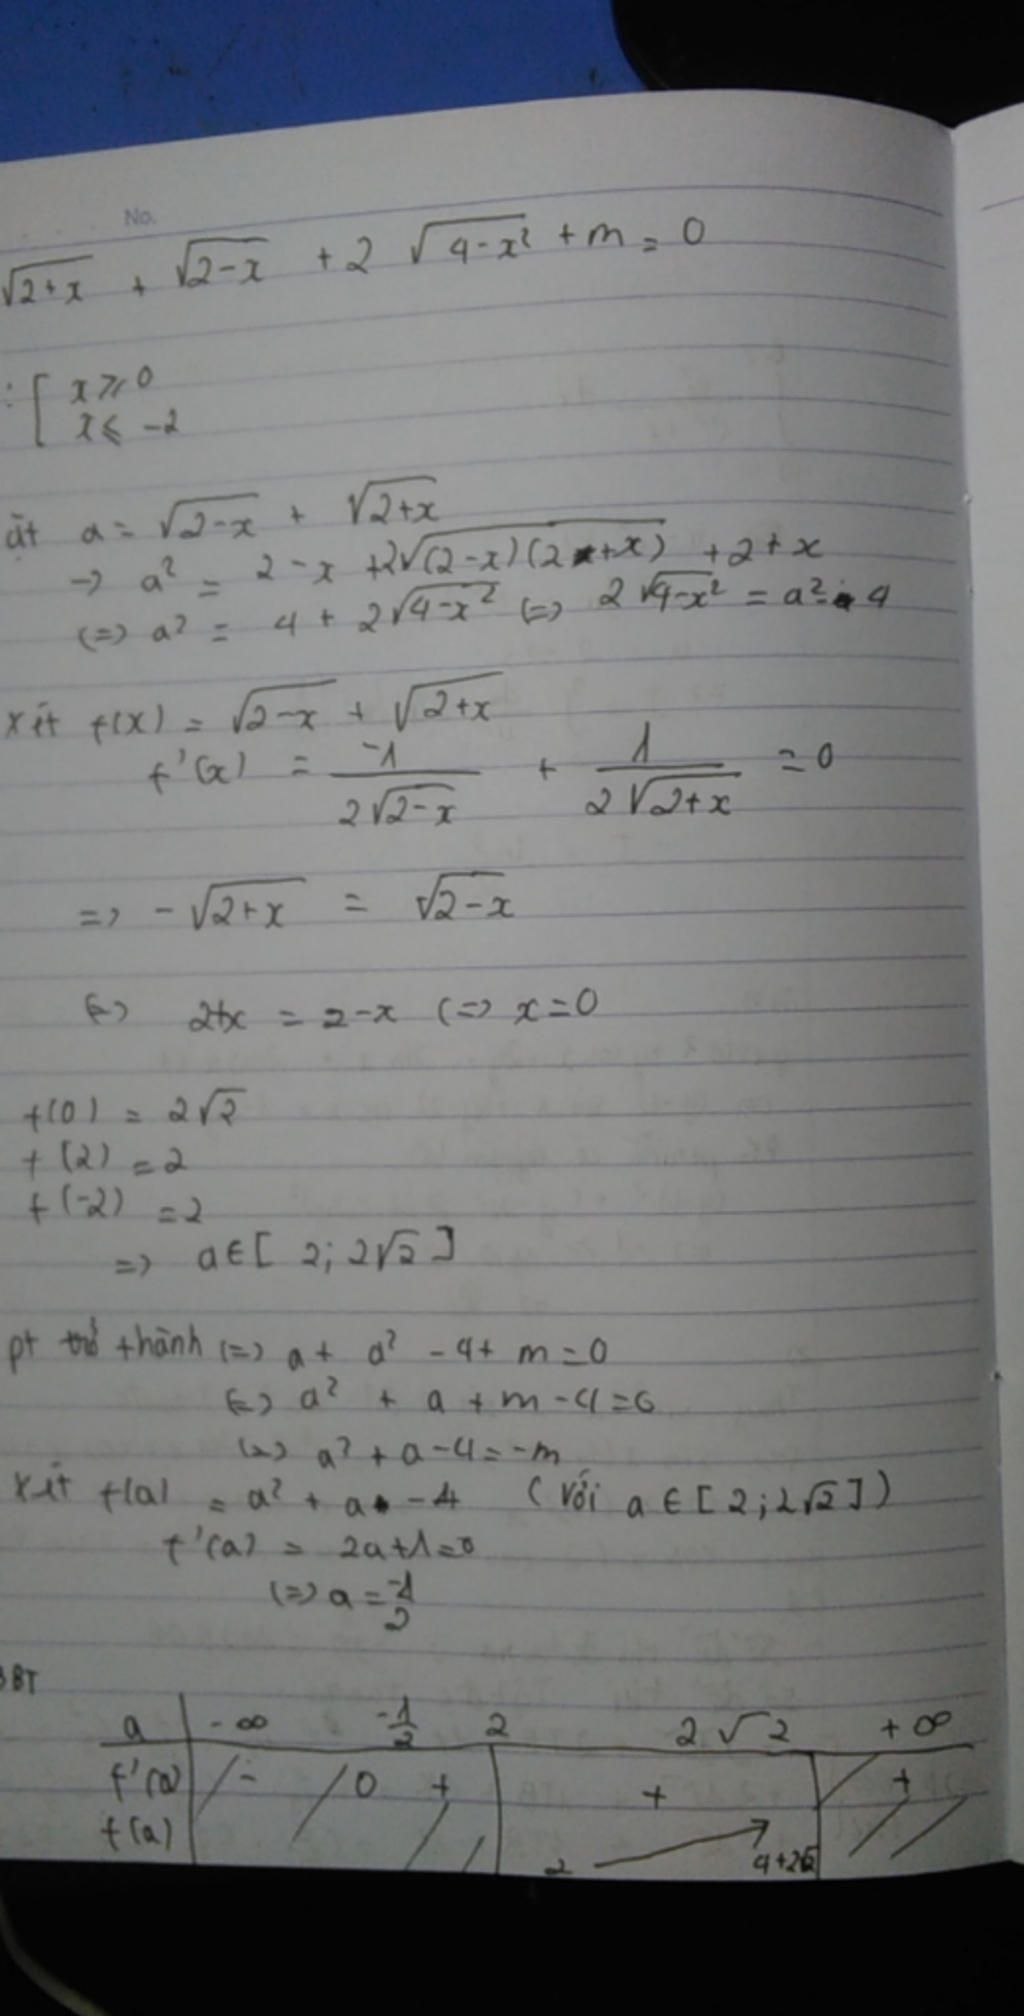 No.
√2+x + √2-x + 2 √4-x² + m = 0
: [ x ≥ 0
x ≤ -2
ặt a = √2-x + √2+x
→ a² = 2-x + 2√(2-x)(2+x) + 2+x
(=) a² = 4 + 2√4-x² (=) 2√4-x² = a² - 4
xét f(x) = √2-x + √2+x
f'(x) = -1/2√2-x + 1/2√2+x = 0
=> -√2+x = √2-x
(=) 2+x = 2-x (=) x=0
f(0) = 2√2
f(2) = 2
f(-2) = 2
=> a ∈ [ 2; 2√2 ]
pt trở thành (=) a + a² - 4 + m = 0
(=) a² + a + m - 4 = 0
(=) a² + a - 4 = -m
xét f(a) = a² + a - 4 ( với a ∈ [ 2; 2√2 ] )
f'(a) = 2a+1=0
(=) a = -1/2
BBT
a -∞ -1/2 2 2√2 +∞
f'(a) - 0 + + +
f(a) 2 4+2√2